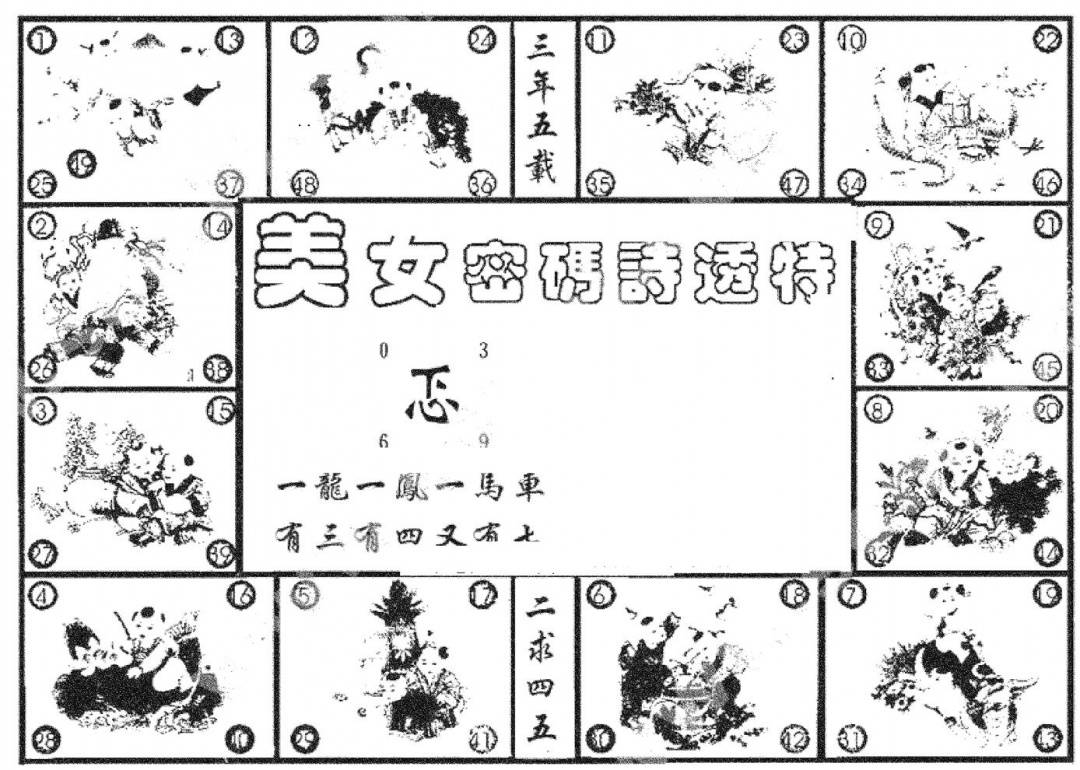 1 13 12 24 11 23 10 22
三年五載
49
25 37 48 36 35 47 34 46
2 14 9 21
美女密碼詩透特
0 3
忑
6 9
26 38 33 45
3 15 8 20
一龍一鳳一馬車
有三有四又有七
27 39 32 44
4 16 5 17 6 18 7 19
二求四五
28 40 29 41 30 42 31 43